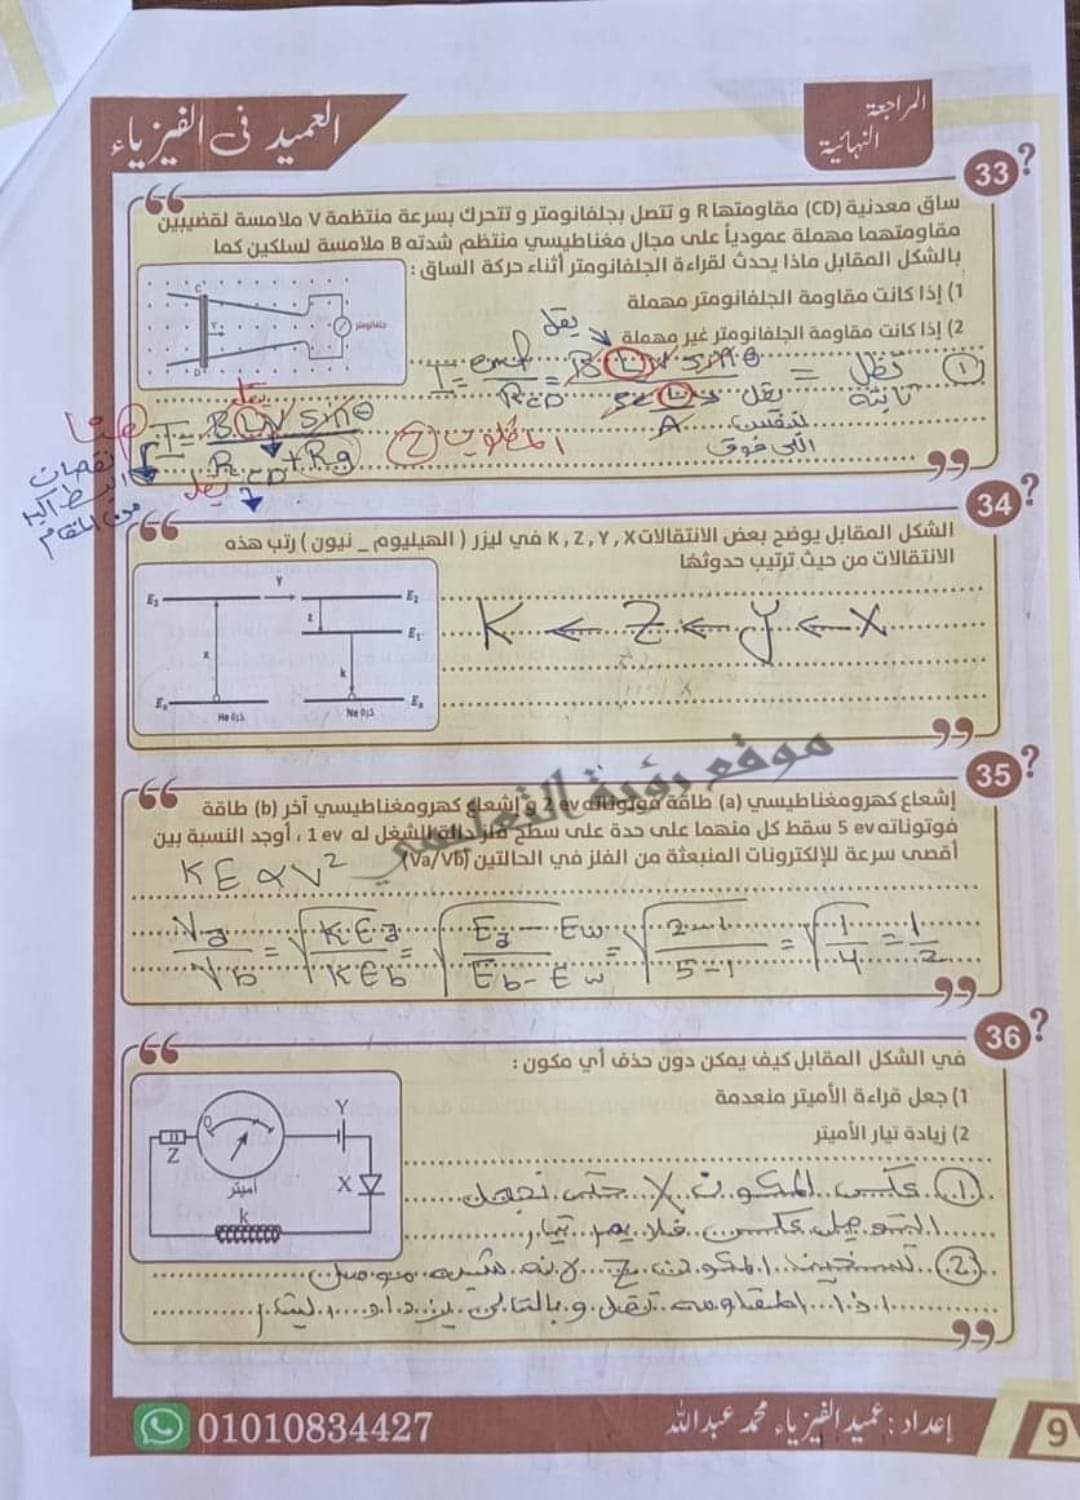 المراجعة
النهائية
العميد فى الفيزياء
33
ساق معدنية (CD) مقاومتها R و تتصل بجلفانومتر و تتحرك بسرعة منتظمة V ملامسة لقضيبين
مقاومتهما مهملة عمودياً على مجال مغناطيسي منتظم شدته B ملامسة لسلكين كما
بالشكل المقابل ماذا يحدث لقراءة الجلفانومتر أثناء حركة الساق :
1) إذا كانت مقاومة الجلفانومتر مهملة
2) إذا كانت مقاومة الجلفانومتر غير مهملة
C
V
جلفانومتر
D
يقل
① تظل ثابتة = B L V sin θ = emf / R CD = I
A
يقل
لنفس
اللى فوق
المطلوب ②
يقل
I = B L V sin θ / R CD + Rg
يقل
هنا
نقصان
البسط اكبر
من المقام
34
الشكل المقابل يوضح بعض الانتقالات K , Z , Y , X في ليزر ( الهيليوم _ نيون ) رتب هذه
الانتقالات من حيث ترتيب حدوثها
Y
E₂
z
E₁
x
k
E₀
E₀
ذرة He
ذرة Ne
K ← Z ← y ← X
موقع رؤية التعليمي
35
إشعاع كهرومغناطيسي (a) طاقة فوتوناته 2 ev و إشعاع كهرومغناطيسي آخر (b) طاقة
فوتوناته 5 ev سقط كل منهما على حدة على سطح فلز دالة الشغل له 1 ev ، أوجد النسبة بين
أقصى سرعة للإلكترونات المنبعثة من الفلز في الحالتين (Va/Vb)
KE α V²
Va/Vb = √(KEa/KEb) = √(Ea - Ew / Eb - Ew) = √(2-1 / 5-1) = √(1/4) = 1/2
36
في الشكل المقابل كيف يمكن دون حذف أي مكون :
1) جعل قراءة الأميتر منعدمة
2) زيادة تيار الأميتر
0
Y
Z
أميتر
X
k
① عكس المكون X حتى نجعل
التوصيل عكسى فلا يمر تيار
② تسخين المكون Z لانه شبه موصل
اذا المقاومة تقل و بالتالى يزداد التيار
01010834427
إعداد : عميد الفيزياء محمد عبدالله
9